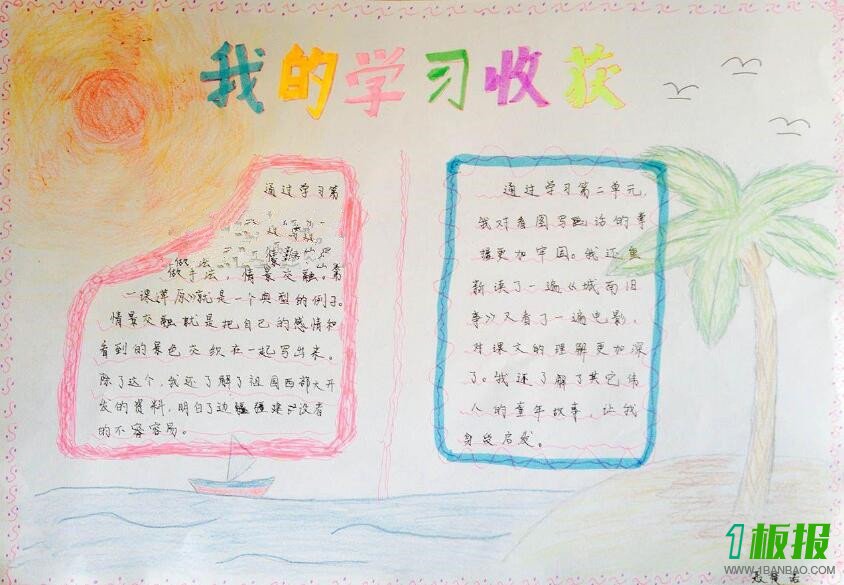 我的学习收获
通过学习第
做手法，情景交融。第
一课《草原》就是一个典型的例子。
情景交融就是把自己的感情和
看到的景色交织在一起写出来。
除了这个，我还了解了祖国西部大开
发的资料，明白了边疆建设者
的不容容易。
通过学习第二单元，
我对看图写话的掌
握更加牢固。我还重
新读了一遍《城南旧
事》又看了一遍电影，
对课文的理解更加深
了。我还了解了其它伟
人的童年故事，让我
身受启发。
1板报
WWW.1BANBAO.COM